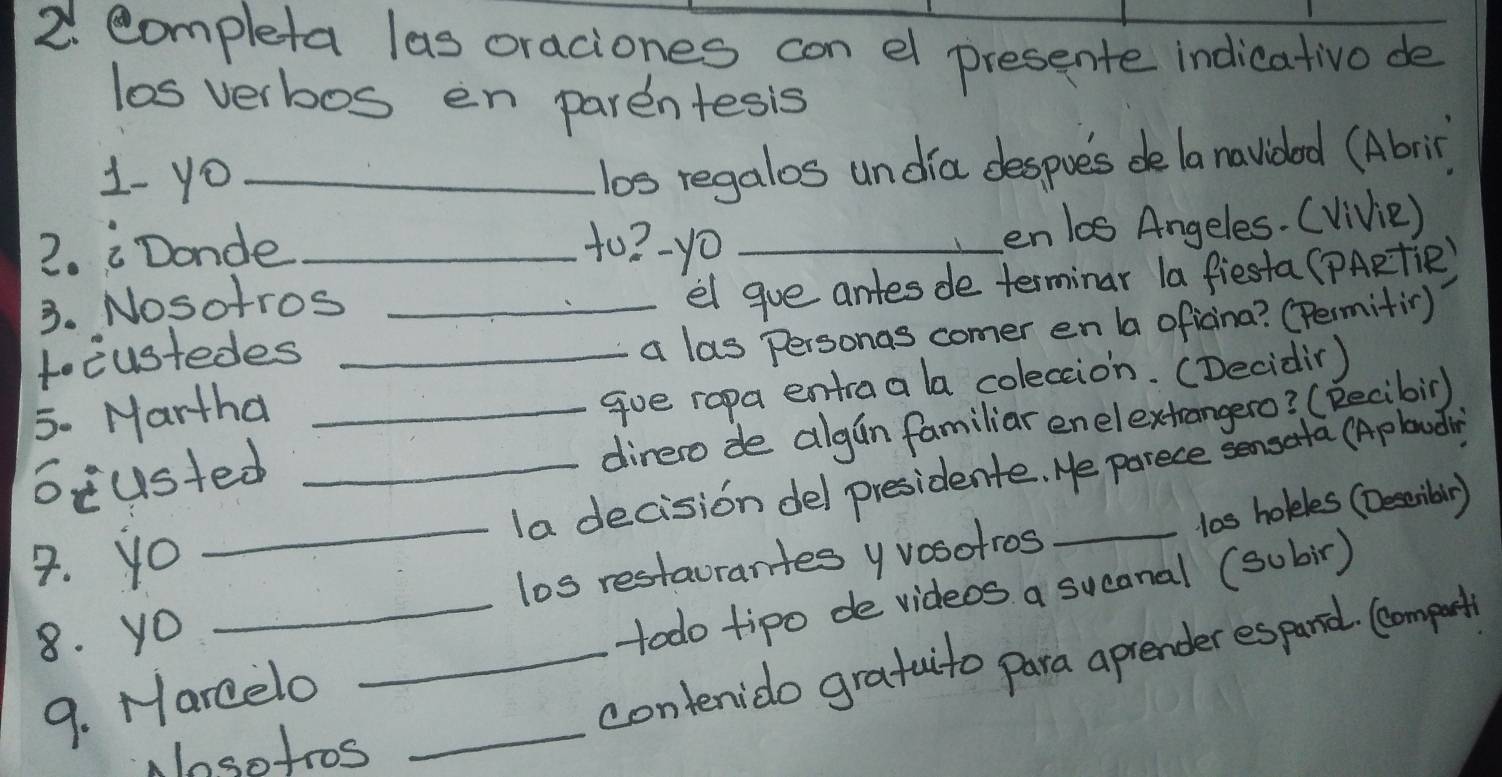 2. Completa las oraciones con el presente indicativo de
los verbos en paréntesis
1- yo ____________ los regalos un día después de la navidad (Abrir.
2. ¿Donde ____________ tu? -yo ____________ en los Angeles. (ViViR)
3. Nosotros ____________ él que antes de terminar la fiesta (PARTiR)
4. ¿ustedes ____________ a las Personas comer en la oficina? (Permitir)
5. Martha ____________ que ropa entra a la colección. (Decidir)
6 ¿usted ____________ dinero de algún familiar en el extrangero? (Recibir)
7. yo ____________ la decisión del presidente. Me parece sensata (Aplaudir
8. yo ____________ los restaurantes y vosotros ______ los hoteles (Describir)
9. Marcelo ____________ todo tipo de videos a su canal (subir)
Nosotros ________ contenido gratuito para aprender español. (comparti